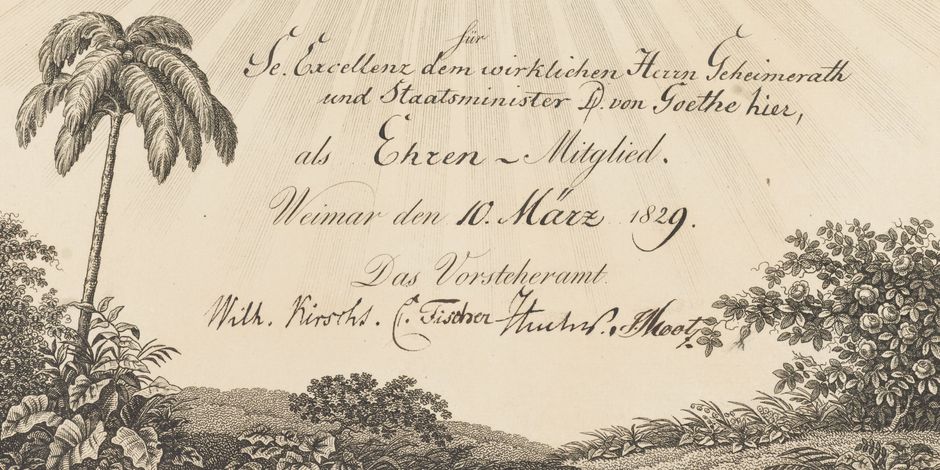 für
Se. Excellenz dem wirklichen Herrn Geheimerath
und Staatsminister D. von Goethe hier,
als Ehren - Mitglied.
Weimar den 10. März 1829.
Das Vorsteheramt.
Wilh. Kirschs. C. Fischer